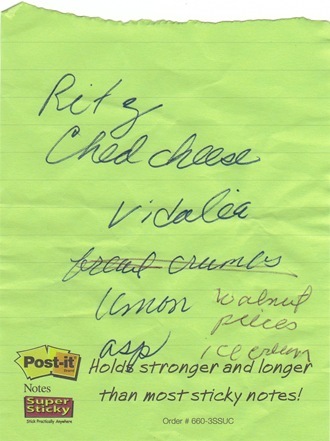 Ritz
Ched cheese
Vidalia
bread crumbs
lemon
walnut
pieces
asp
ice cream
Post-it
Notes
Super
Sticky
Stick Practically Anywhere
Holds stronger and longer
than most sticky notes!
Order # 660-3SSUC